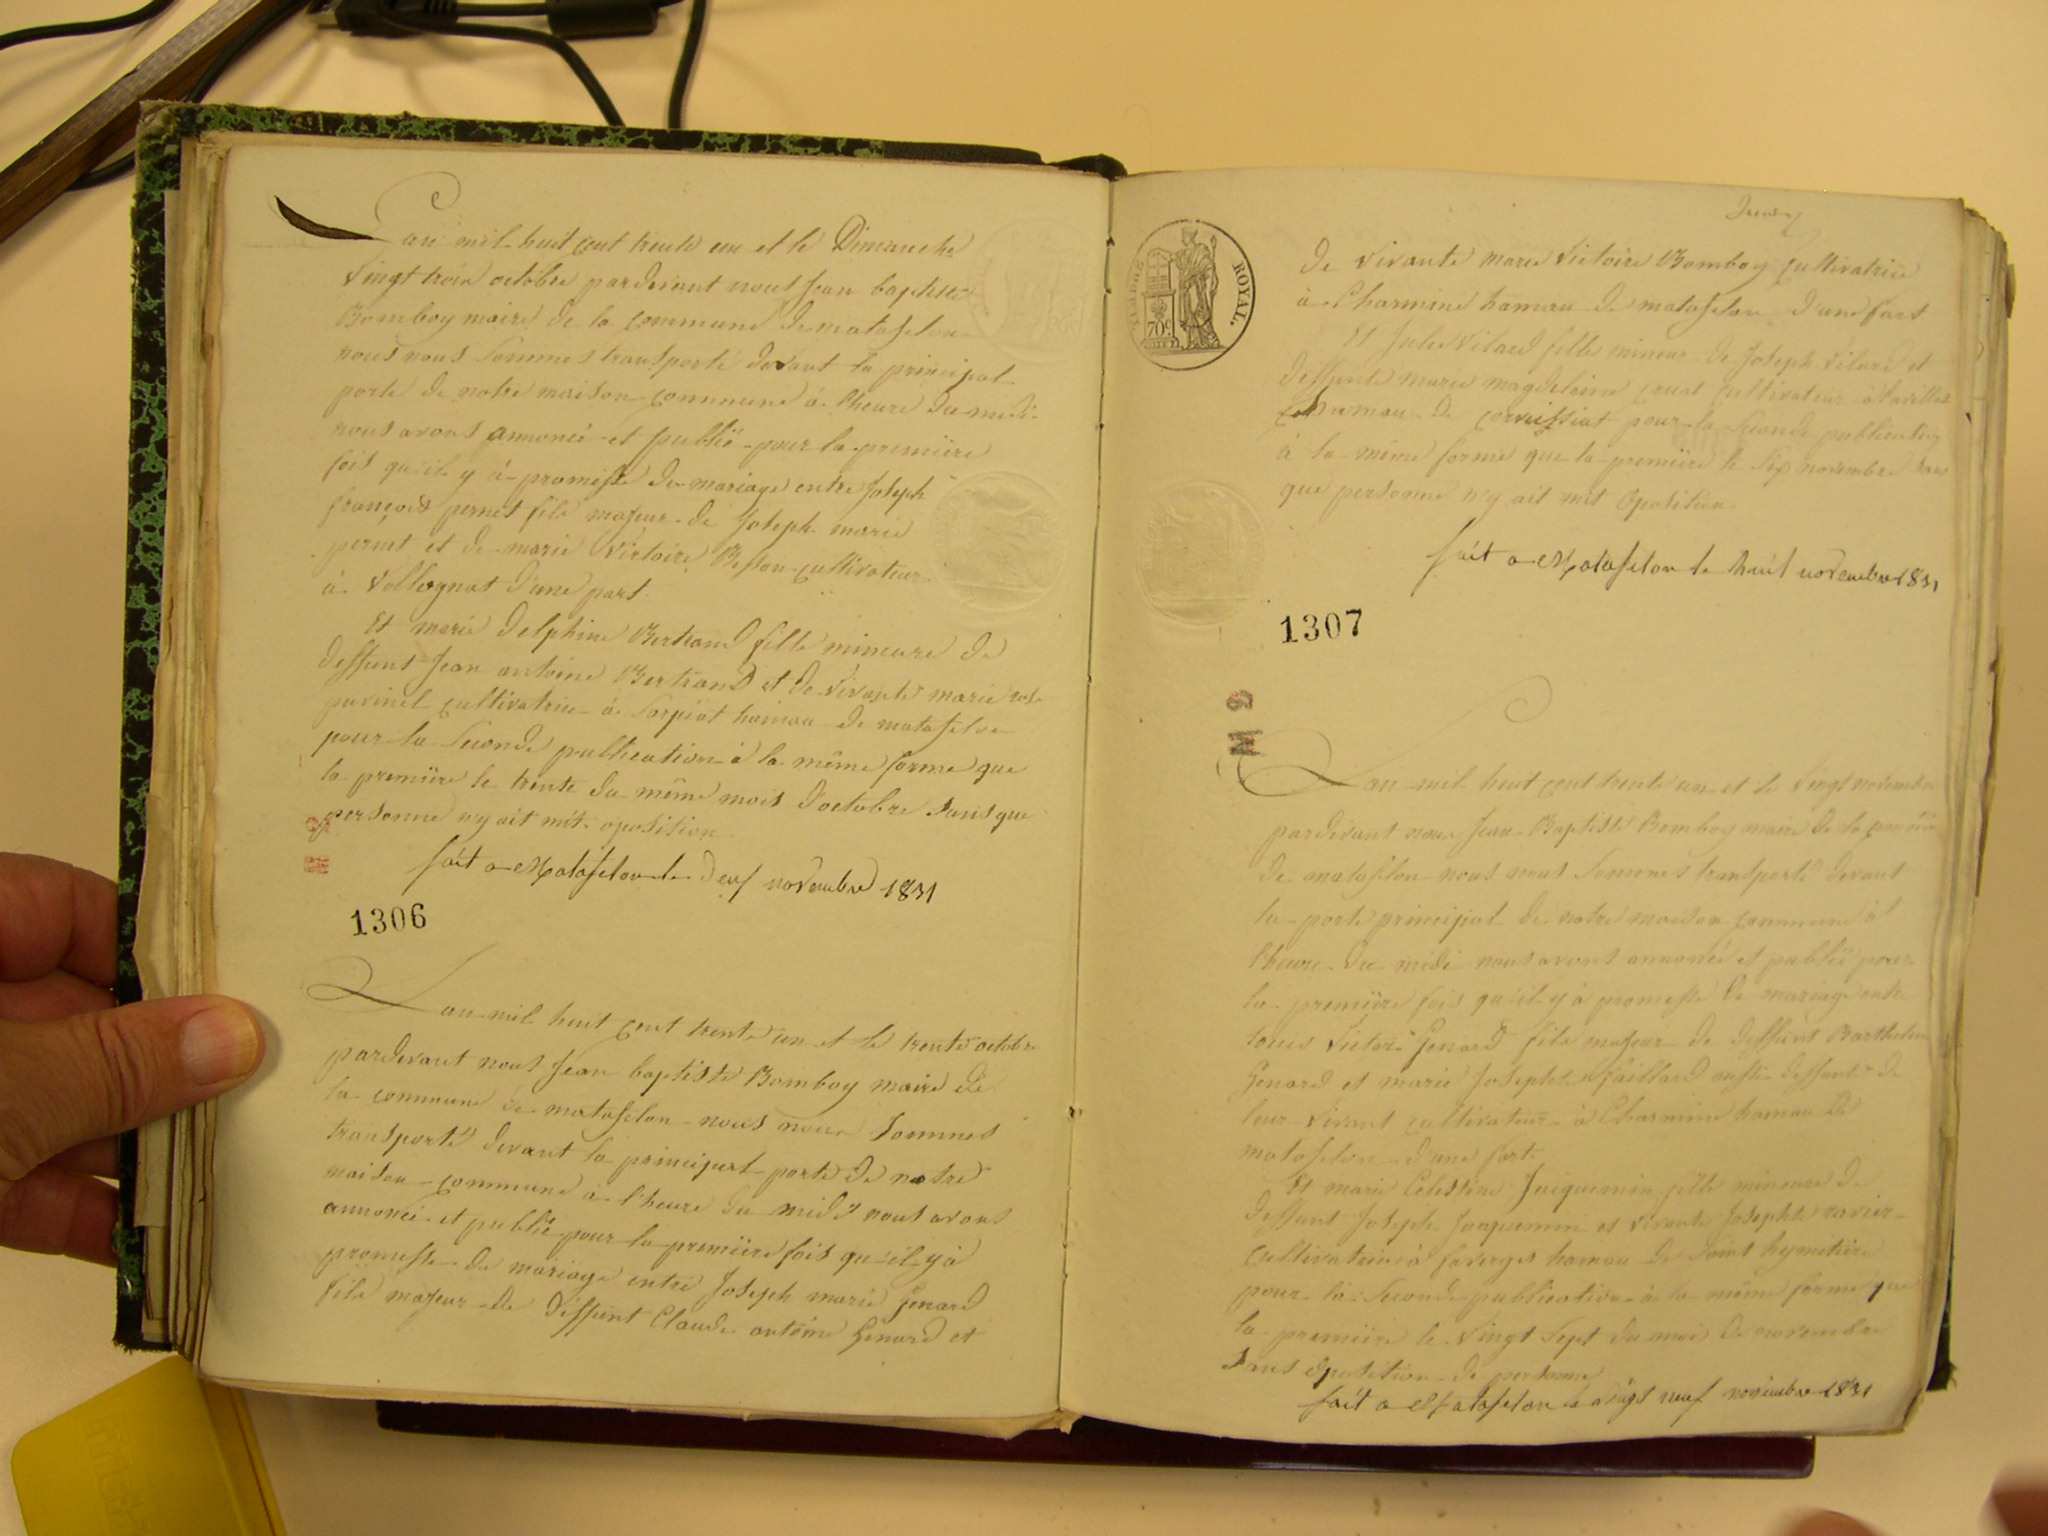 L'an mil huit cent trente un et le Dimanche
Vingt trois octobre pardevant nous Jean baptiste
Bomboy maire de la commune de matafelon
nous nous sommes transporté devant la principal
porte de notre maison commune à l'heure du midi
nous avons annoncé et publié pour la première
fois qu'il y à promesse de mariage entre Joseph
françois pernet fils majeur de Joseph marie
pernet et de marie Victoire Besson cultivateur
à Vollognat d'une part.
Et marie Delphine Bertrand fille mineure de
deffunt Jean antoine Bertrand et de vivante marie rose
pavinel cultivatrice à Corpiat hameau de matafelon
pour la seconde publication à la même forme que
la première le trente du même mois d'octobre sans que
personne n'y ait mit oposition.
fait a Matafelon le deux novembre 1831
1306
L'an mil huit cent trente un et le trente octobre
pardevant nous Jean baptiste Bomboy maire de
la commune de matafelon nous nous sommes
transporté devant la principal porte de notre
maison commune à l'heure du midi nous avons
annoncé et publié pour la première fois qu'il y à
promesse de mariage entre Joseph marie Genard
fils majeur de deffunt Claude antoine Genard et
TIMBRE ROYAL.
70c
de vivante marie Victoire Bomboy cultivatrice
à Charmine hameau de matafelon d'une part
Et Julie Vilard fille mineur de Joseph Vilard et
deffunte marie magdelaine cultivateur à
hameau de corveissiat pour la seconde publication
à la même forme que la première le six novembre sans
que personne n'y ait mit oposition.
fait a Matafelon le huit novembre 1831
1307
M 9
L'an mil huit cent trente un et le Vingt novembre
pardevant nous Jean Baptiste Bomboy maire de la commune
de matafelon nous nous sommes transporté devant
la porte principal de notre maison commune à
l'heure du midi nous avons annoncé et publié pour
la première fois qu'il y à promesse de mariage entre
Louis Victor Genard fils majeur de deffunt Barthelemi
Genard et marie Josephte Maillard aussi deffunte de
leur vivant cultivateur à Charmine hameau de
matafelon d'une part.
Et marie Celestine Jacquemin fille mineure de
deffunt Joseph Jacquemin et vivante Josephte ravier
cultivatrice à faverges hameau de Saint hymetière
pour la seconde publication à la même forme que
la première le vingt sept du mois de novembre
sans oposition de personne
fait a Matafelon le vingt neuf novembre 1831